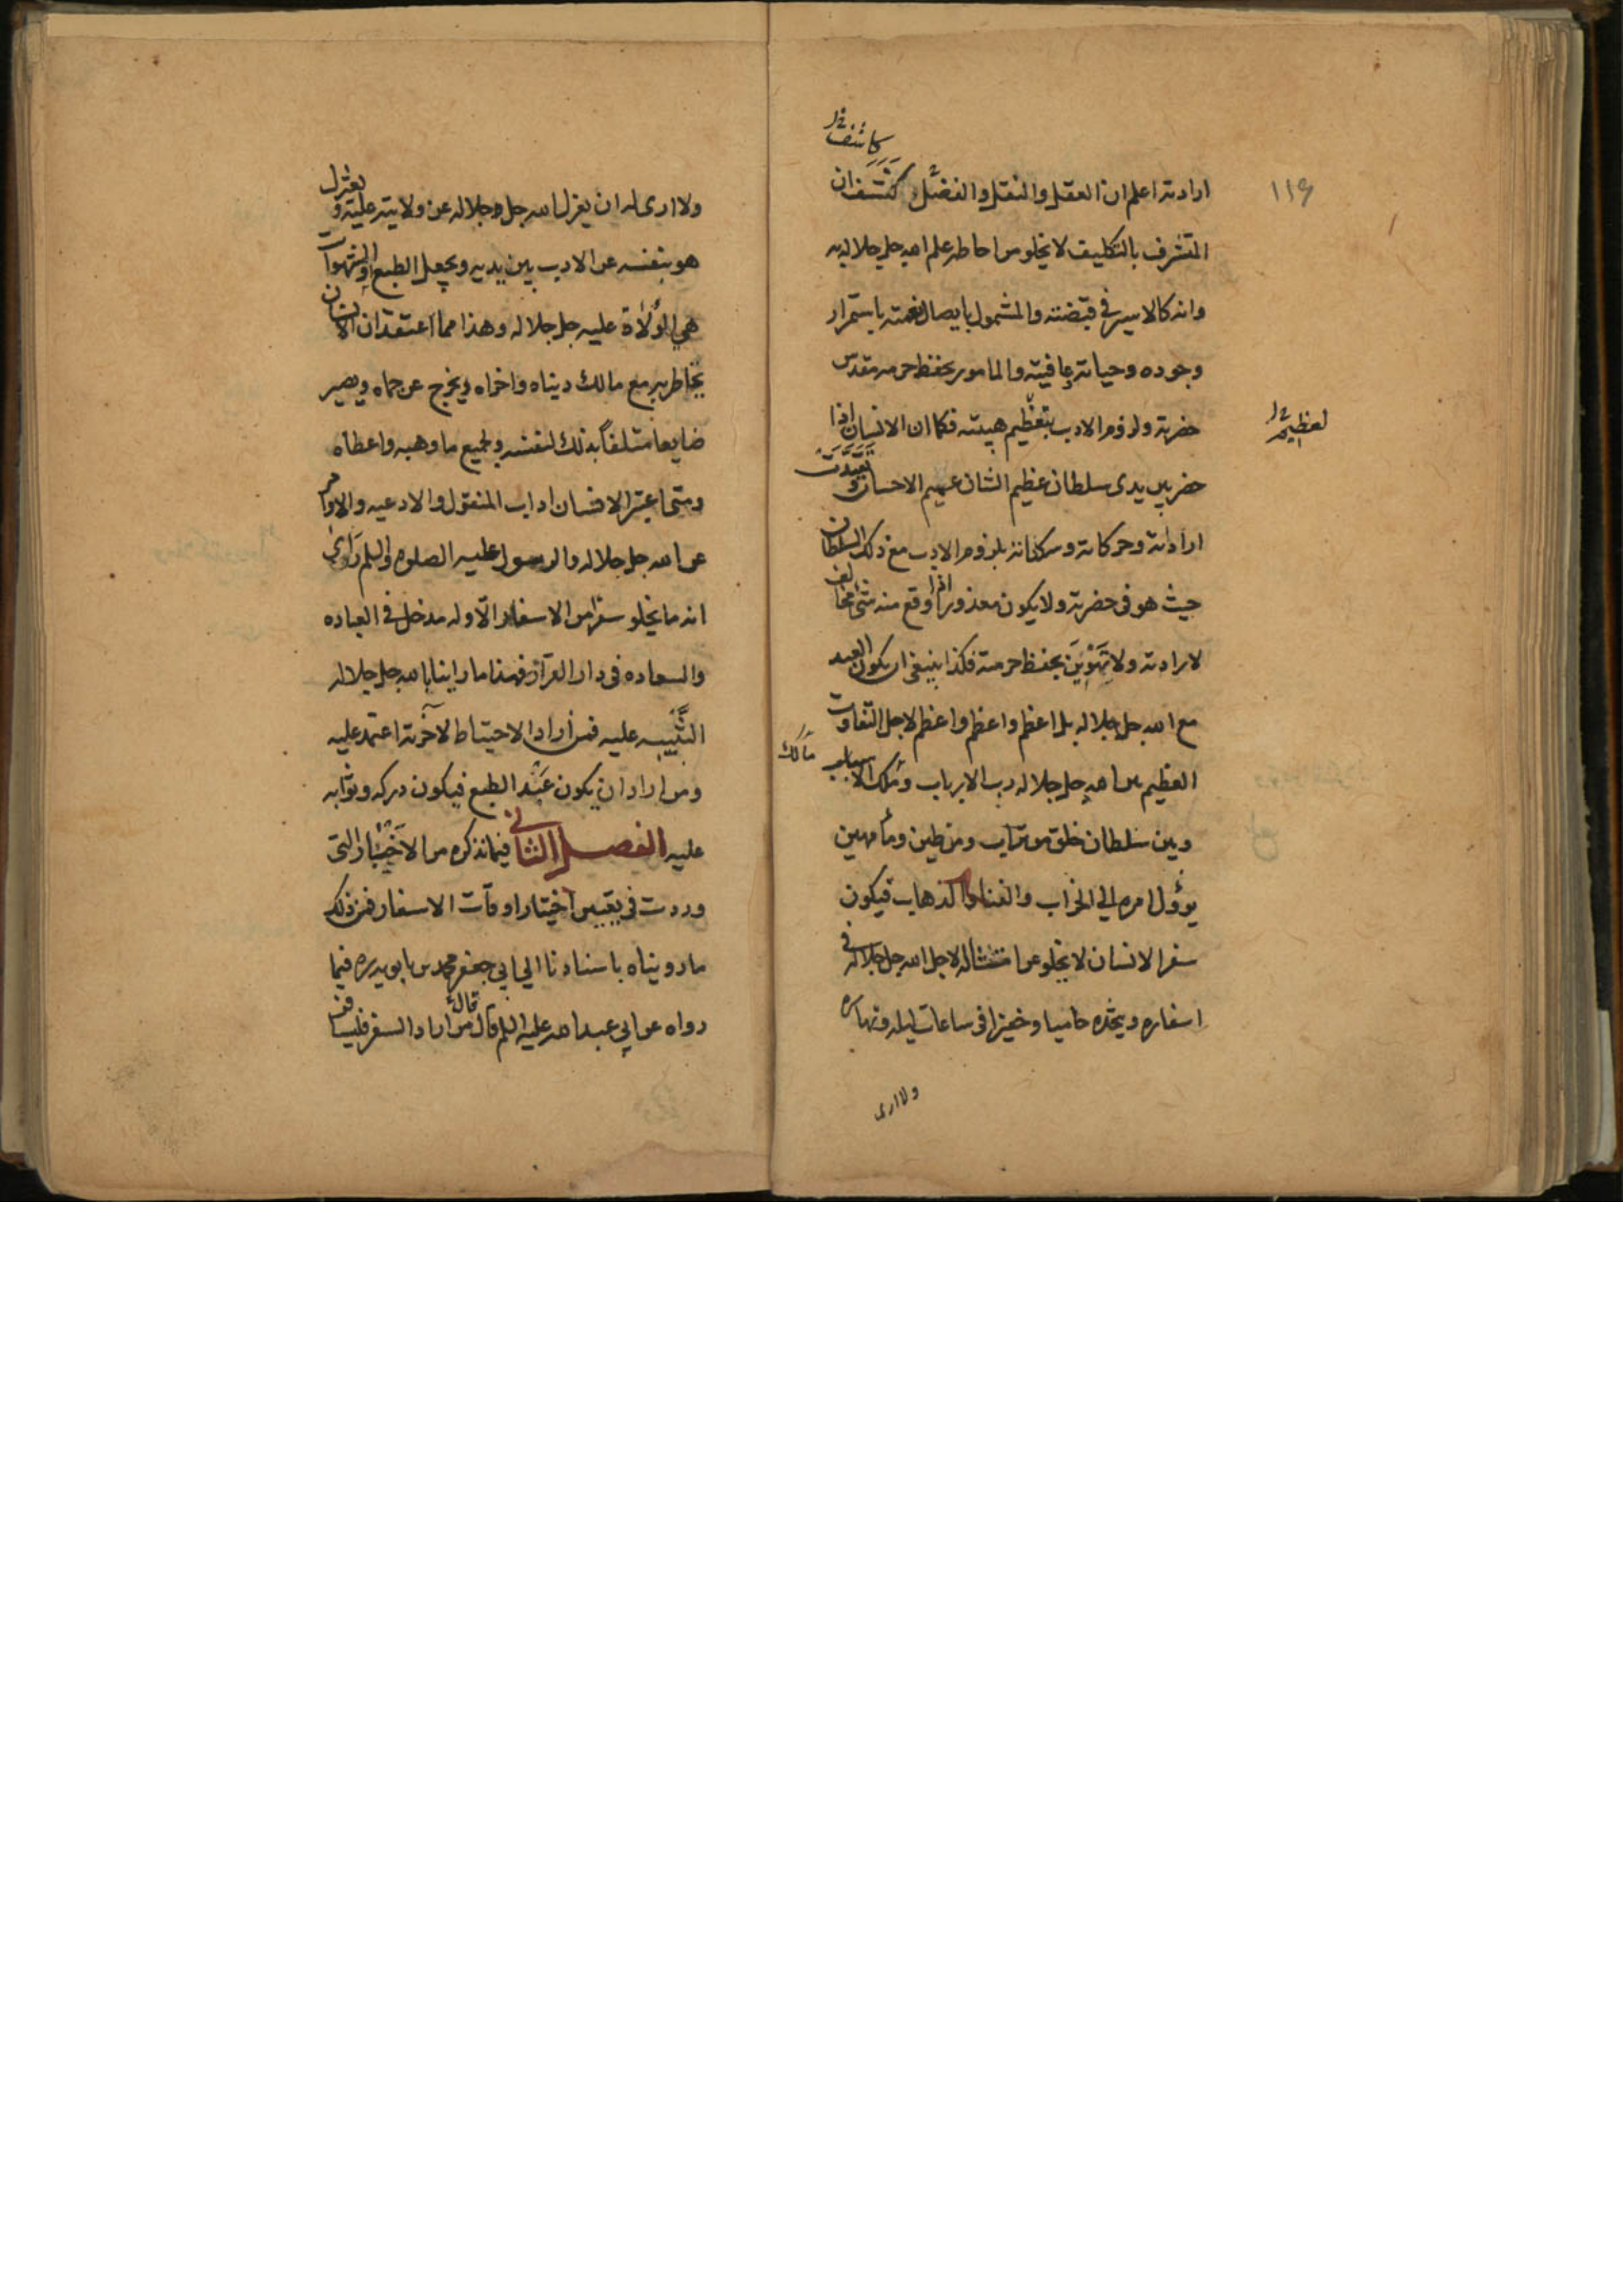 ١١٩
كاشف خ
ارادته اعلم ان العقل والنقل والفضل كشف ان
المتشرف بالتكليف لا يخلو من احاطه علم الله جل جلاله به
وانه كالاسير في قبضته والمشمول بايصال نعمته باستمرار
وجوده وحياته وعافيته والمامور بحفظ حرمه مقدس
حضرته ولزوم الادب بتعظيم هيبته فكما ان الانسان اذا
لعظيم خ
حضر بين يدى سلطان عظيم الشان عميم الاحسان و تقيدت
اراداته وحركاته وسكناته بلزوم الادب مع ذلك السلطان
حيث هو فى حضرته ولا يكون معذورا اذا وقع منه شئ مخالف
لارادته ولا تهوين بحفظ حرمته فكذا ينبغى ان يكون العبد
مع الله جل جلاله بل اعظم واعظم واعظم لاجل التفاوت
العظيم بين الله جل جلاله رب الارباب وملك الاسباب
مالك
وبين سلطان خلق من تراب ومن طين وماء مهين
يؤول امره الى الخراب والفناء والذهاب فيكون
سفر الانسان لا يخلو من امتثاله لاجل الله جل جلاله في
اسفاره ويتخذه حاميا وخفيرا فى ساعات ليله ونهاره
ولا ارى
ولا ارى له ان يعزل الله جل جلاله عن ولايته عليه و يعتزل
هو بنفسه عن الادب بين يديه ويجعل الطبع او الشهوات
هي الولاة عليه جل جلاله وهذا مما اعتقد ان الانسان
يخاطر به مع مالك دنياه واخراه ويخرج عن حماه ويصير
ضايعا متلفا بذلك لنفسه ولجميع ما وهبه واعطاه
ومتى اعتبر الانسان اداب المنقول والادعيه والاوامر
عن الله جل جلاله والرسول عليه الصلوه والسلم راى
انه ما يخلو سفر من الاسفار الا وله مدخل فى العباده
والسعاده فى دار القرار فهذا ما راينا بالله جل جلاله
التنبيه عليه فمن اراد الاحتياط لاخرته اعتمد عليه
ومن اراد ان يكون عبد الطبع فيكون دركه وثوابه
عليه الفصل الثانى فيما نذكره من الاخبار التى
وردت فى تعيين اختيار اوقات الاسفار فمن ذلك
ما رويناه باسنادنا الى ابي جعفر محمد بن بابويه ره فيما
رواه عن ابي عبد الله عليه السلم قال قال من اراد السفر فليسافر